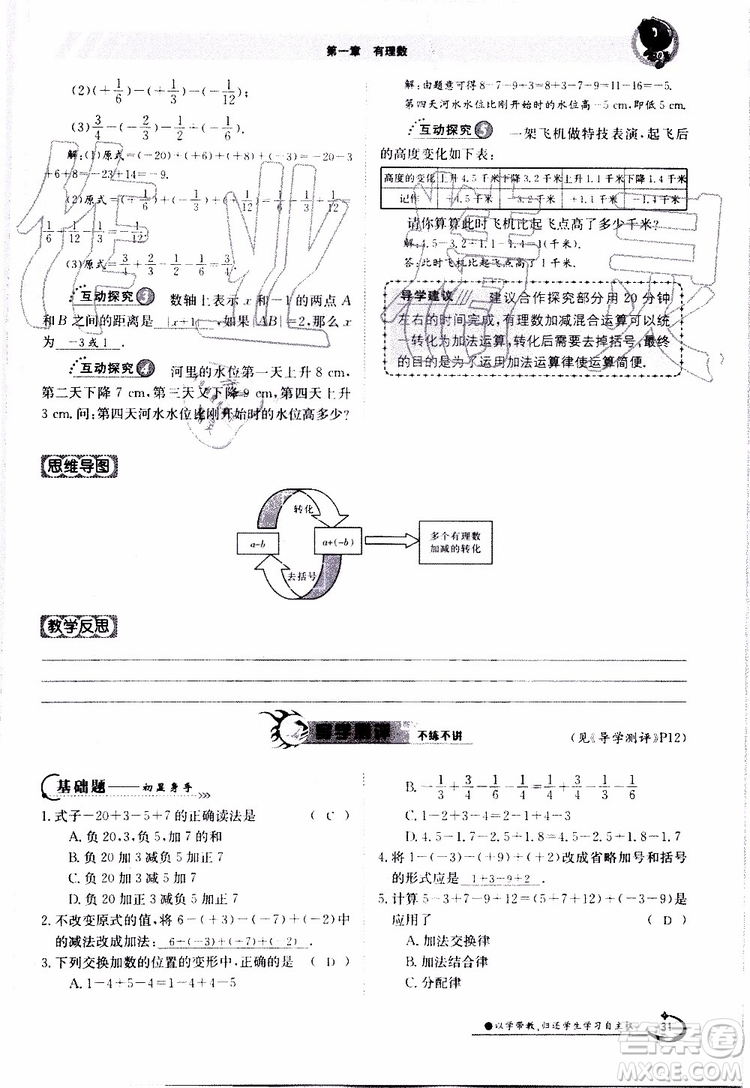 第一章 有理数
(2)(-1/6)-(-1/3)-(-1/12);
(3)3/4-(-1/2)-(-1/4).
解:(1)原式=(-20)+(+6)+(+8)+(-3)=-20
+6+8=-23+14=-9.
(2)原式=(-1/6)+(+1/3)+(+1/12)=-
(3)原式=
互动探究3 数轴上表示 x 和-1 的两点 A
和 B 之间的距离是 |x+1| ,如果|AB|=2,那么 x
为 -3或1 .
互动探究4 河里的水位第一天上升 8 cm,
第二天下降 7 cm,第三天又下降 9 cm,第四天上升
3 cm.问:第四天河水水位比刚开始时的水位高多少?
解:由题意可得 8-7-9+3=8+3-7-9=11-16=-5.
第四天河水水位比刚开始时的水位高-5 cm,即低 5 cm.
互动探究5 一架飞机做特技表演,起飞后
的高度变化如下表:
高度的变化 上升 4.5 千米 下降 3.2 千米 上升 1.1 千米 下降 1.4 千米
记作 +4.5 千米 -3.2 千米 +1.1 千米 -1.4 千米
请你算算此时飞机比起飞点高了多少千米.
解:4.5-3.2+1.1-1.4=1(千米).
答:此时飞机比起飞点高了 1 千米.
导学建议 建议合作探究部分用 20 分钟
左右的时间完成,有理数加减混合运算可以统
一转化为加法运算,转化后去掉括号,最终的
目的是为了运用加法运算律使运算简便.
思维导图
转化
a-b
a+(-b)
去括号
多个有理数
加减的转化
教学反思
不练不讲
(见《导学测评》P12)
基础题——初显身手
1.式子-20+3-5+7 的正确读法是 ( C )
A.负 20,3,负 5,正 7 的和
B.负 20 加 3 减负 5 加正 7
C.负 20 加 3 减 5 加 7
D.负 20 加 3 减负 5 加 7
2.不改变原式的值,将 6-(+3)-(+7)+(-2)中
的减法改成加法: 6+(-3)+(-7)+(-2) .
3.下列交换加数的位置的变形中,正确的是 ( D )
A.1-4+5-4=1-4+4-5
B.-1/3+3/4-1/6-1/4=1/4+3/4-1/3-1/6
C.1-2+3-4=2-1+4-3
D.4.5-1.7-2.5+1.8=4.5-2.5+1.8-1.7
4.将 1-(-3)-(+9)+(+2)改成省略加号和括号
的形式应是 1+3-9+2 .
5.计算 5-3+7-9+12=(5+7+12)+(-3-9)是
应用了 ( D )
A.加法交换律
B.加法结合律
C.分配律
●以学带教,归还学生学习自主权
31